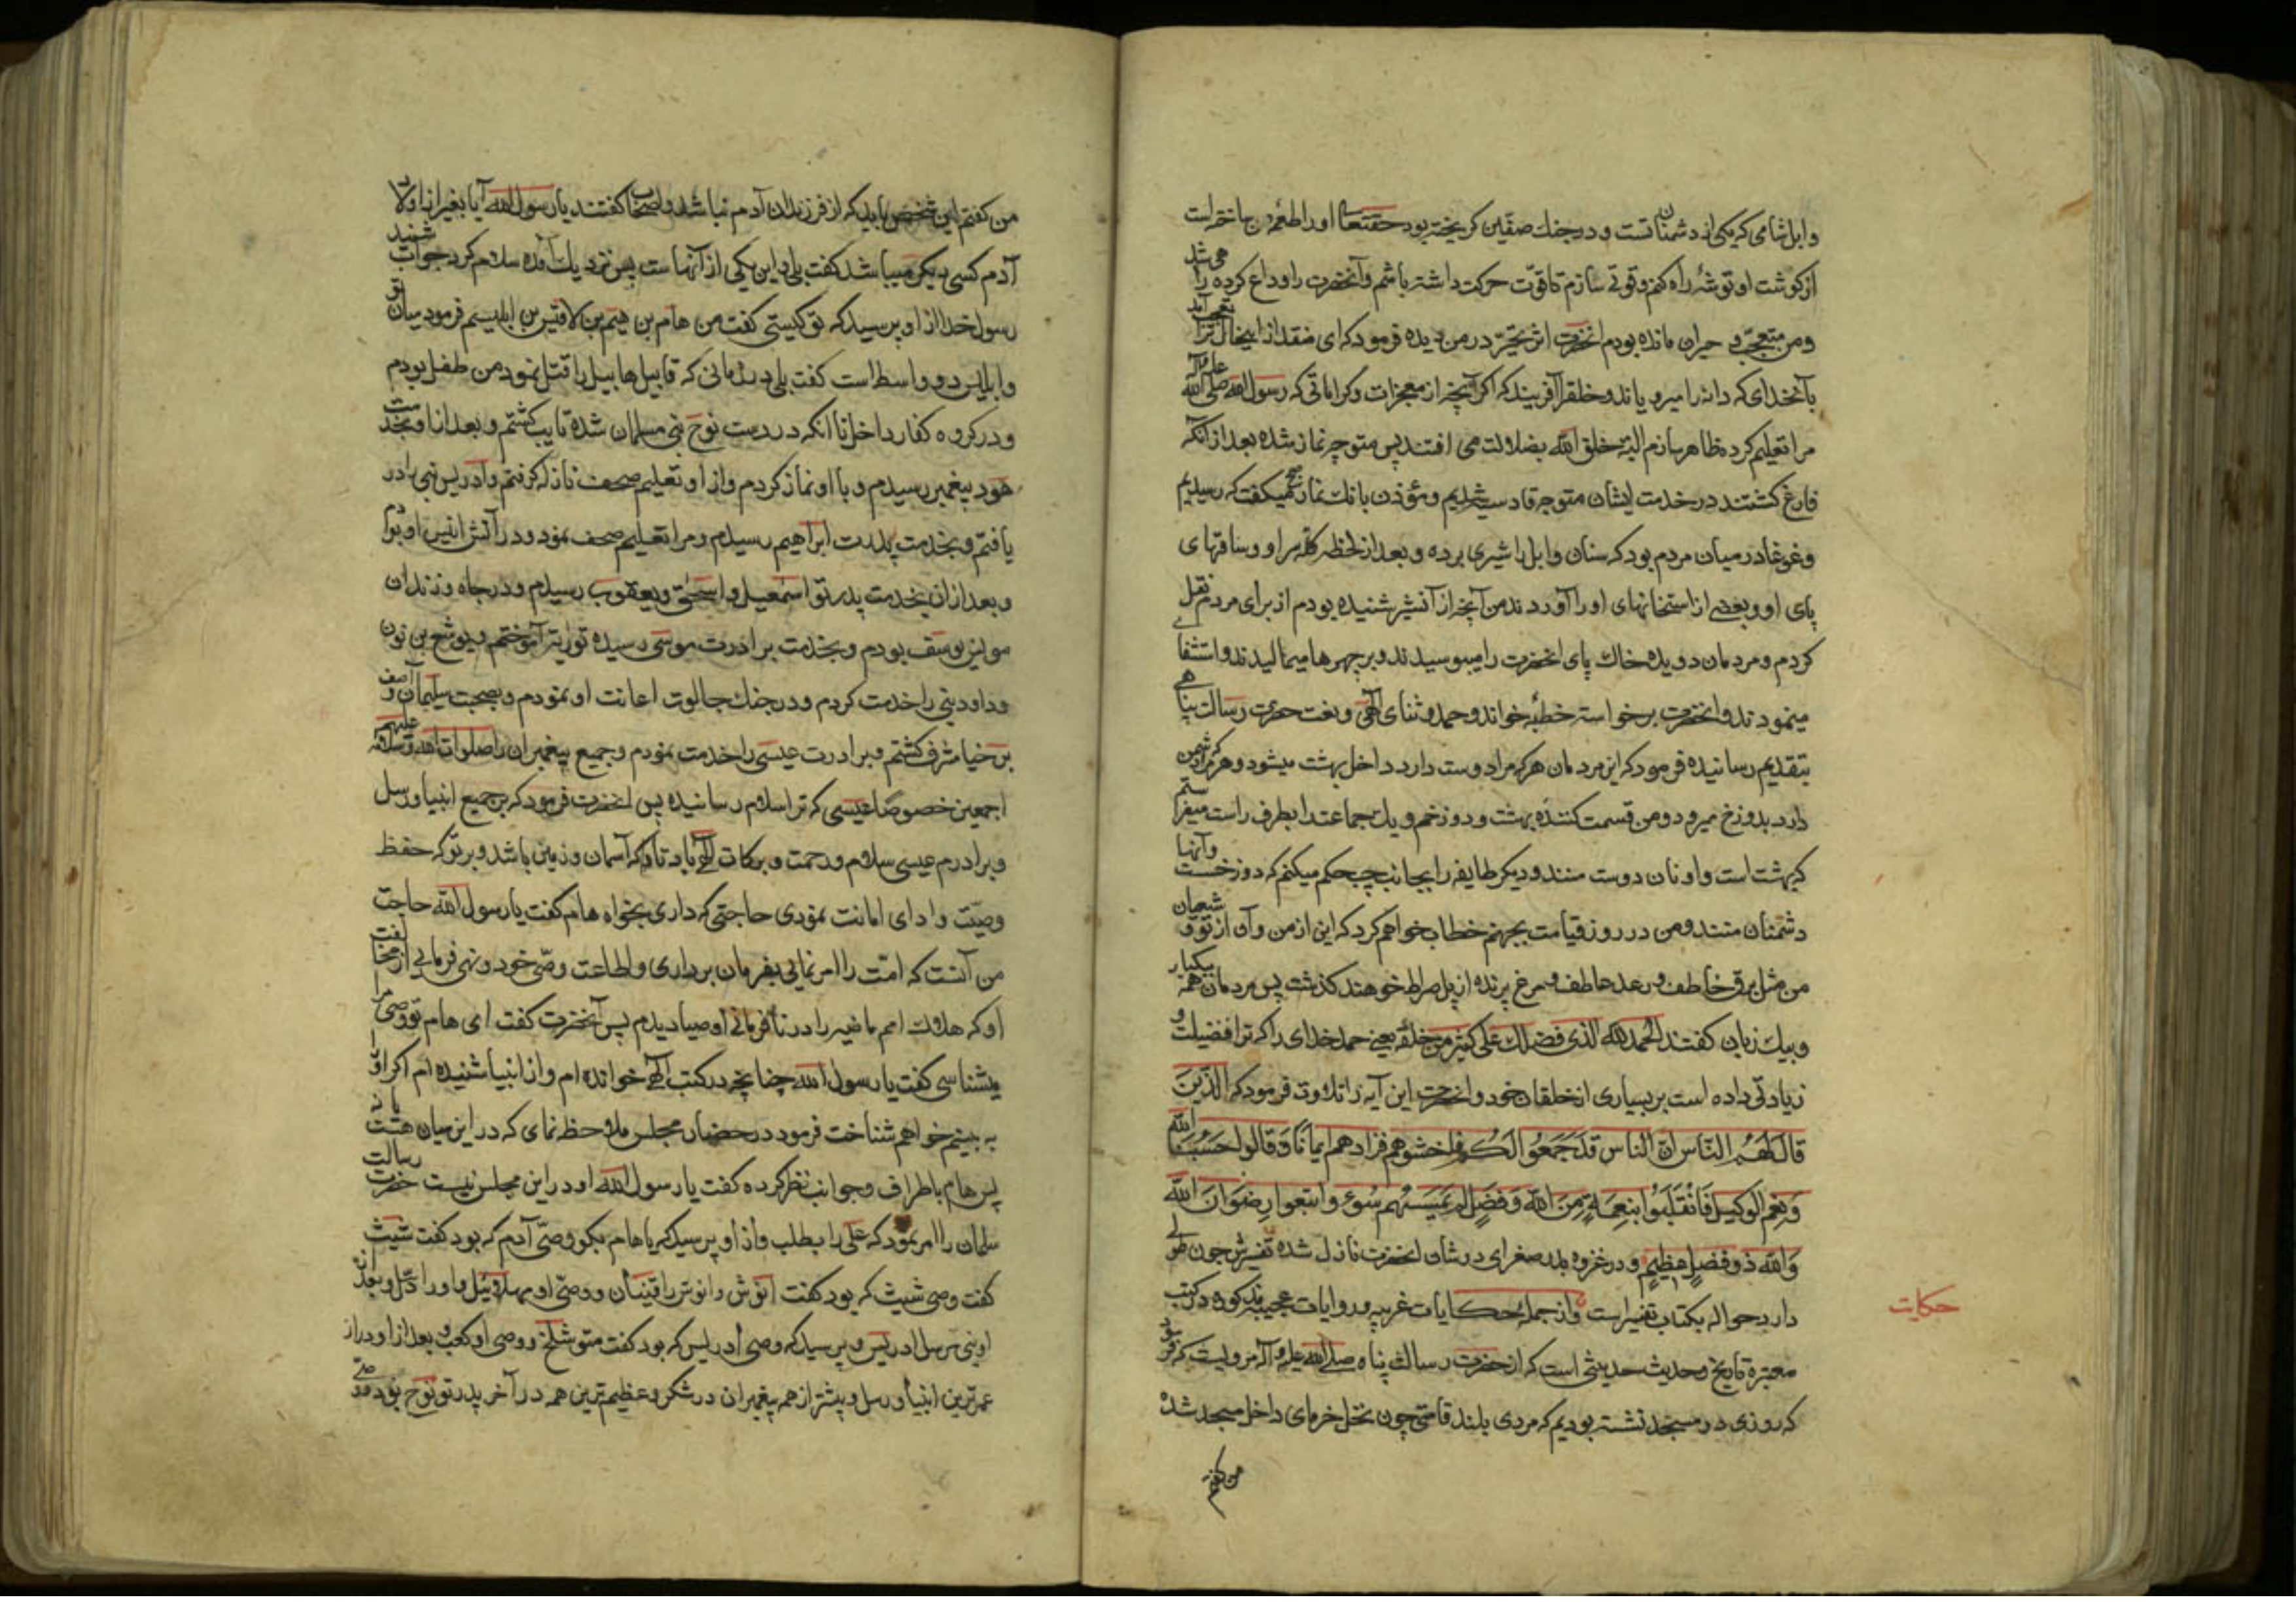 وابل شامی که یکی از دشمنان تست و در جنك صفین کریخته بود حقتعالی او را طعمهٔ من ساخته است
از کوشت او توشهٔ راه کنم و قوتی سازم تا قوّت حرکت داشته باشم و آنحضرت را وداع کرده راهی شد
و من متعجّب و حیران مانده بودم انحضرت اثر تحیّر در من دیده فرمود که ای منقذ از اینحال ترا تعجب آمد
بآنخدای که دانه را میرویاند و خلق را آفریند که اکر آنچه از معجزات و کراماتی که رسول الله صلی الله علیه و آله
مرا تعلیم کرده ظاهر سازم البته خلق الله بضلالت می افتند پس متوجه نماز شده بعد از آنکه
فارغ کشتند در خدمت ایشان متوجه قادسیه شدیم و مؤذن بانك نماز صبح میکفت که رسیدیم
و غوغا در میان مردم بود که سنان وابل را شیری برده و بعد از لحظه کله سر او و ساقهای
پای او و بعضی از استخانهای او را آوردند من آنچه از آن شیر شنیده بودم از برای مردم نقل
کردم و مردمان دویده خاك پای انحضرت را میبوسیدند و بر چهرها میمالیدند و استشفا
مینمودند و انحضرت برخواسته خطبه خواند و حمد و ثنای الهی و نعت حضرت رسالت پناهی
بتقدیم رسانیده فرمود که این مردمان هر که مرا دوست دارد داخل بهشت میشود و هر که مرا دشمن
دارد بدوزخ میرود و من قسمت کنندهٔ بهشت و دوزخم و یك جماعت را بطرف راست میفرستم
که بهشت است و اونان دوست منند و دیکر طایفه را بجانب چپ حکم میکنم که دوزخست و آنها
دشمنان منند و من در روز قیامت بجهنم خطاب خواهم کرد که این از من و آن از تو و شیعیان
من مثل برق خاطف و رعد عاطف و مرغ پرنده از پل صراط خوهند کذشت پس مردمان همه بیکبار
و بیك زبان کفتند الحمد لله الذی فضلك علی کثیر من خلقه یعنی حمد خدای را که ترا فضیلت و
زیادتی داده است بر بسیاری از خلقان خود و انحضرت این آیه را تلاوت فرمود که الَّذِینَ
قالَ لَهُمُ النّاس انَّ النّاس قَد جَمَعُوا لَکُم فاخشوهم فَزادهم ایماناً وَقالوا حَسبُنَا الله
وَنِعمَ الوَکیل فَانقَلَبُوا بِنِعمَةٍ مِنَ الله وَفَضلٍ لم یَمسَسهُم سُوء واتبعوا رِضوَانَ الله
وَالله ذو فضلٍ عظیم و در غزوه بدر صغرای در شان انحضرت نازل شده تفسیرش چون طولی
دارد حواله بکتاب تفسیر است و از جمله حکایات غریبه و روایات عجیبه مذکوره در کتب
حکایات
معتبره تاریخ و حدیث حدیثی است که از حضرت رسالت پناه صلی الله علیه و آله مرویست که فرمود
که روزی در مسجد نشسته بودیم که مردی بلند قامتی چون نخل خرمای داخل مسجد شد
من کفتم
من کفتم این شخص باید که از فرزندان آدم نباشد و اصحاب کفتند یا رسول الله آیا بغیر از اولاد
آدم کسی دیکر میباشد کفت بلی و این یکی از آنهاست پس نزدیك آمده سلام کرد جواب شنید
رسول خدا از او پرسید که تو کیستی کفت من هام بن هیم بن لاقیس بن ابلیسم فرمود میان تو
و ابلیس دو واسط است کفت بلی در زمانی که قابیل هابیل را قتل نمود من طفل بودم
و در کروه کفار داخل تا انکه در دست نوح نبی مسلمان شده تایب کشتم و بعد از او بخدمت
هود پیغمبر رسیدم و با او نماز کردم و از او تعلیم صحف نازله کرفتم و ادریس نبی را در
یافتم و بخدمت پدرت ابراهیم رسیدم و مرا تعلیم صحف نمود و در آتش انیس او بودم
و بعد از ان بخدمت پدر تو اسمعیل و اسحق و یعقوب رسیدم و در چاه و زندان
مونس یوسف بودم و بخدمت برادرت موسی رسیده توریة آموختم و یوشع بن نون
و داود نبی را خدمت کردم و در جنك جالوت اعانت او نمودم و بصحبت سلیمان و آصف
بن برخیا مشرف کشتم و برادرت عیسی را خدمت نمودم و جمیع پیغمبران را صلوات الله و سلامه علیهم
اجمعین خصوصًا عیسی که ترا سلام رسانیده پس انحضرت فرمود که بر جمیع انبیا و رسل
و برادرم عیسی سلام و رحمت و برکات الهی باد تا که آسمان و زمین باشد و بر تو که حفظ
وصیّت و ادای امانت نمودی حاجتی که داری بخواه هام کفت یا رسول الله حاجت
من آنست که امّت را امر نمائی بفرمان برداری و اطاعت وصی خود و نهی فرمائی از مخالفت
او که هلاك امم ماضیه را در نافرمانی اوصیا دیدم پس آنحضرت کفت ای هام تو وصی مرا
میشناسی کفت یا رسول الله چنانچه در کتب الهی خوانده ام و از انبیا شنیده ام اکر او را
به بینم خواهم شناخت فرمود در حضار مجلس ملاحظه نمای که در این میان هست یا نه
پس هام باطراف و جوانب نظر کرده کفت یا رسول الله او در این مجلس نیست حضرت رسالت
سلمان را امر نمود که علی را بطلب و از او پرسید که یا هام بکو وصی آدم که بود کفت شیث
کفت وصی شیث که بود کفت انوش و انوش را قینان و وصی او مهلائیل و او را ادد و بعد از
او نبی مرسل ادریس و پرسید که وصی ادریس که بود کفت متوشلخ و وصی او بعد از او دراز
عمرترین انبیا و رسل و بیشتر از همه پیغمبران در شکر و عظیم ترین همه در آخر پدر تو نوح بود